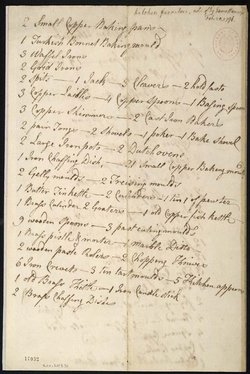 Kitchen furniture,
2 Small Copper Baking pans
1 Turkish Bonnet Baking mould
3 Waffel Irons
2 Grid Irons
2 Spits 1 Jack 3 Cleavers 2 hold fasts
3 Copper Ladles 4 Copper Spoons 1 Basting spoon
3 Copper Skimmers 2 Cast Iron Bakers
2 pair Tongs 2 Shovels 1 poker 1 Bake Shovel
2 Large Iron pots 2 Dutch ovens
1 Iron Chaffing Dish, 21 Small Copper Baking moulds
2 Gelly moulds 2 Freising moulds
1 Butter tin Kettle 2 1 tin
1 Brass Cullinder 2 Graters 1 old Copper fish kettle
9 wooden Spoons 3 past cuting moulds
1 Brass pistle & morter 1 Marble
2 wooden paste Rolers 2 Chopping Knives
6 Iron Creuets 3 tin tart moulds 5 Kitchen apperns
1 old Brass Kettle 1 Iron Candle stick
2 Brass Chaffing Dishes